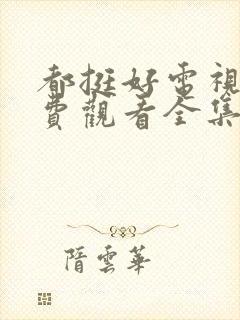 都挺好電視
費觀看全集
隋雲華